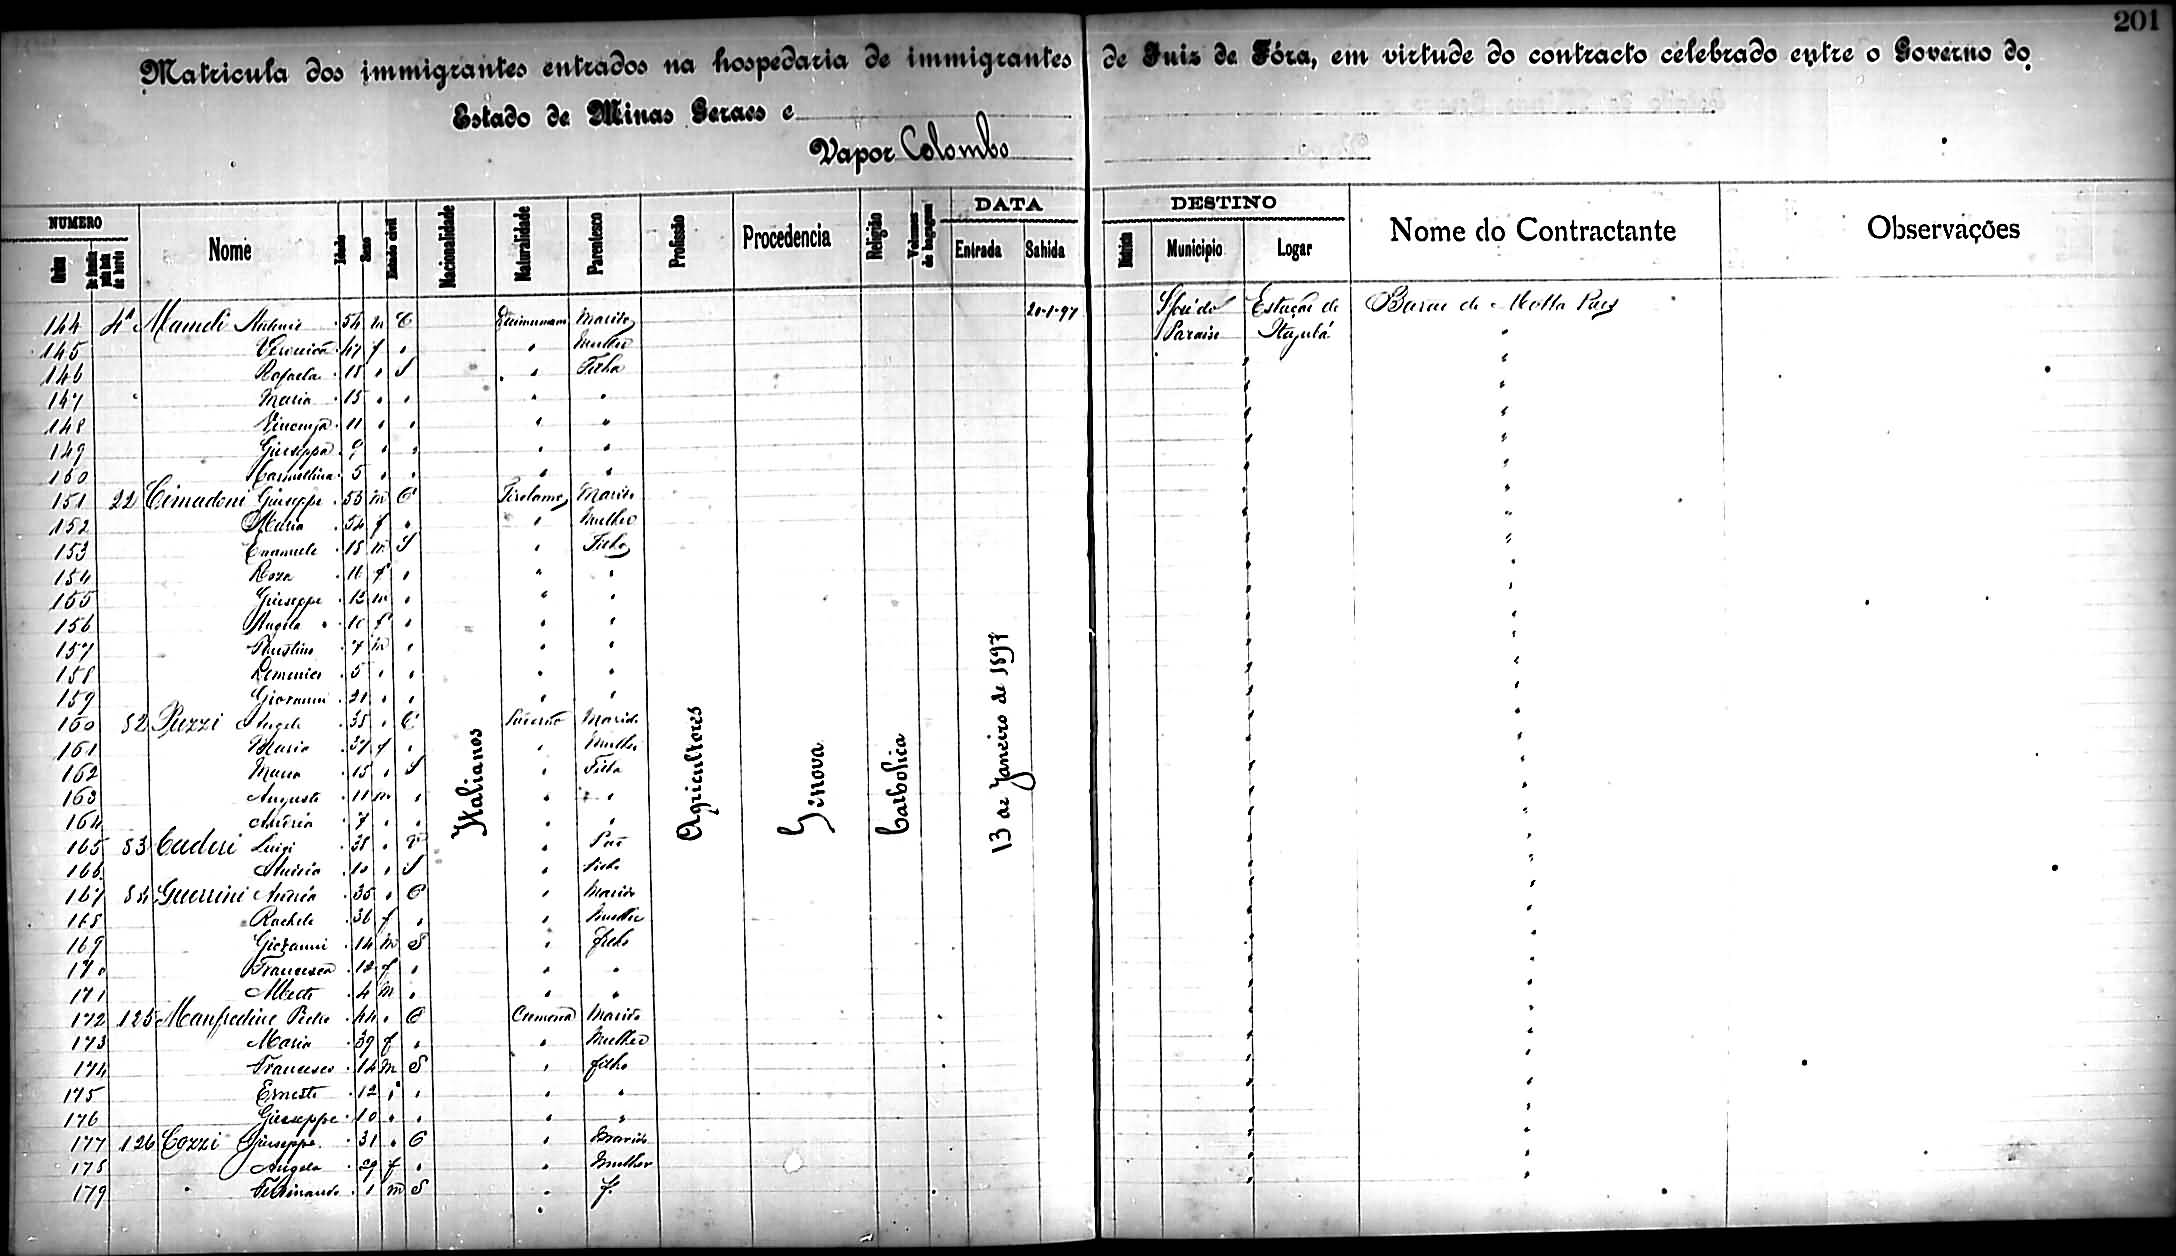 201
Matricula dos immigrantes entrados na hospedaria de immigrantes de Juiz de Fóra, em virtude do contracto celebrado entre o Governo do
Estado de Minas Geraes e
Vapor Colombo
NUMERO Nome Idade Sexo Estado civil Nacionalidade Naturalidade Parentesco Profissão Procedencia Religião Volumes de bagagem DATA DESTINO Nome do Contractante Observações
Ordem Entrada Sahida Municipio Logar
Italianos Agricultores Genova Catholica 13 de Janeiro de 1897
144 Antonio 54 m C Marido 20-1-97 Estação de Barão de Motta Paes
Paraiso Itajubá
145 Veronica 47 f " " Mulher
146 Rafaela 18 " S " Filha
147 Maria 15 " " " "
148 11 " " " "
149 Giuseppa 9 " " " "
150 Carmellina 5 " " " "
151 22 Cimadoni Giuseppe 53 m C Marido
152 Maria 54 f " " Mulher
153 Emanuele 18 m S " Filho
154 Roza 16 f " " "
155 Giuseppe 13 m " " "
156 Angela 10 f " " "
157 Faustino 7 m " " "
158 Domenico 5 " " " "
159 Giovanni 21 " " " "
160 82 Puzzi Angelo 38 " C Marido
161 Maria 37 f " " Mulher
162 15 " S " Filha
163 Augusto 11 m " " "
164 Andréa 7 " " " "
165 83 Luigi 38 " V " Pae
166 Andréa 10 " S " Filho
167 84 Guerrini Andréa 35 " C " Marido
168 Rachele 36 f " " Mulher
169 Giovanni 14 m S " filho
170 Francesca 12 f " " "
171 Alberto 4 m " " "
172 125 Manfredine Pietro 44 " C Cremona Marido
173 Maria 39 f " " Mulher
174 Francesco 14 m S " filho
175 Ernesto 12 " " " "
176 Giuseppe 10 " " " "
177 126 Cozzi Giuseppe 31 " C " Marido
178 Angela 29 f " " Mulher
179 Ferdinando 1 m S " f.